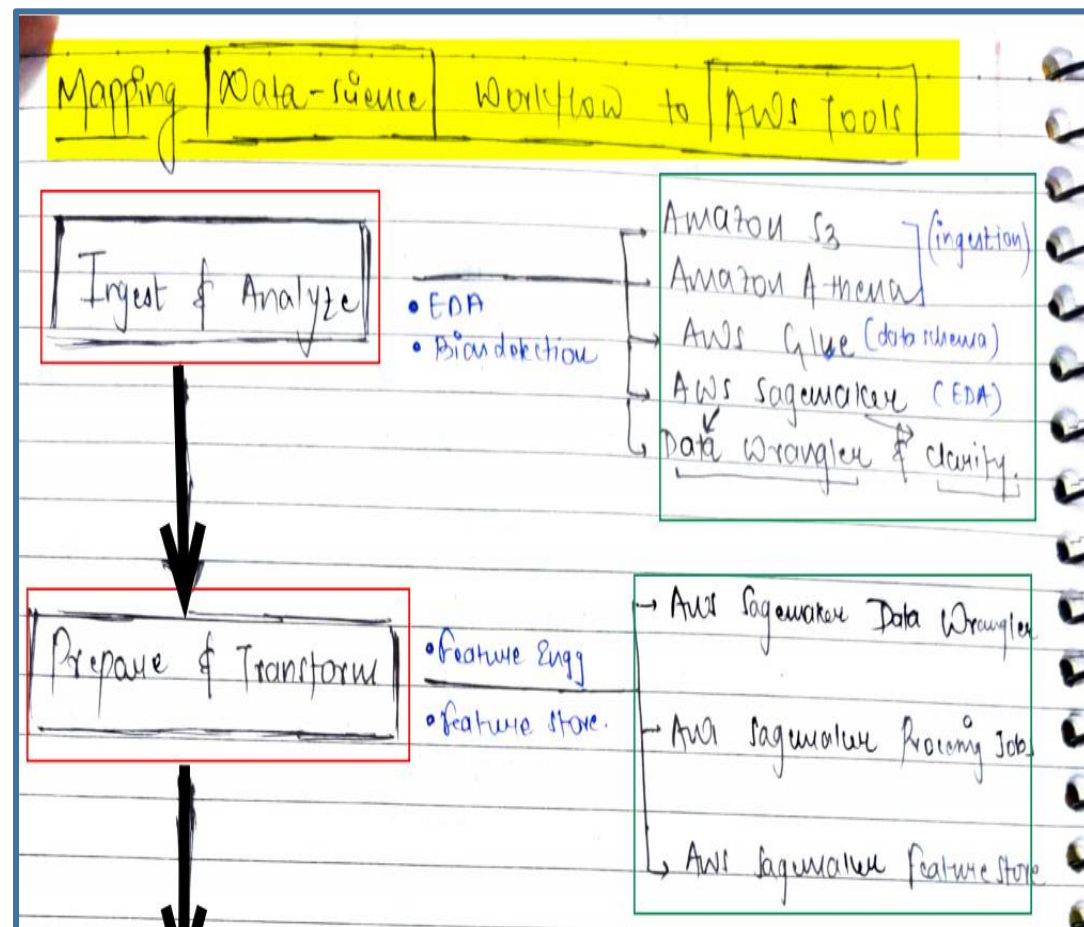 Mapping Data-science Workflow to AWS Tools
Ingest & Analyze
• EDA
• Bias detection
Amazon S3
Amazon Athena
(ingestion)
AWS Glue (data schema)
AWS Sagemaker (EDA)
Data Wrangler & clarity.
Prepare & Transform
• Feature Engg
• Feature store.
AWS Sagemaker Data Wrangler
AWS Sagemaker Processing Jobs
AWS Sagemaker Feature Store